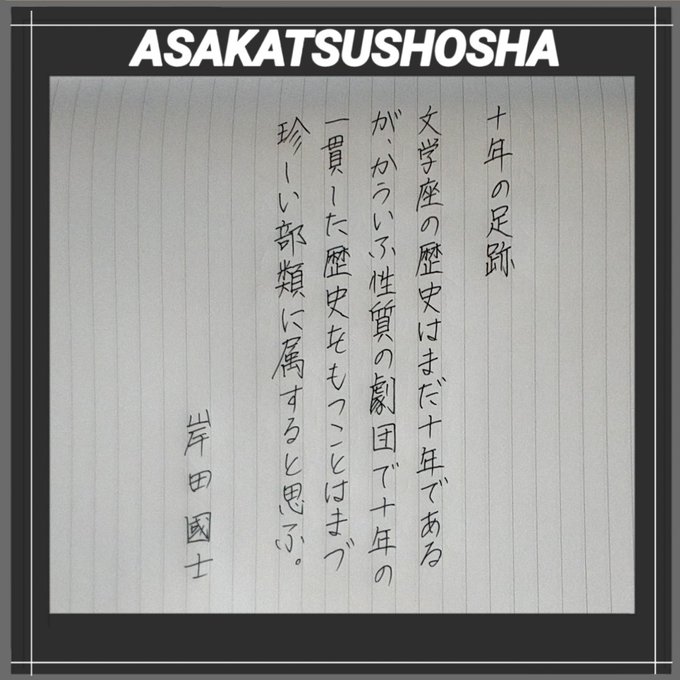 ASAKATSUSHOSHA
十年の足跡
文学座の歴史はまだ十年である
が、かういふ性質の劇団で十年の
一貫した歴史をもつことはまづ
珍しい部類に属すると思ふ。
岸田國士